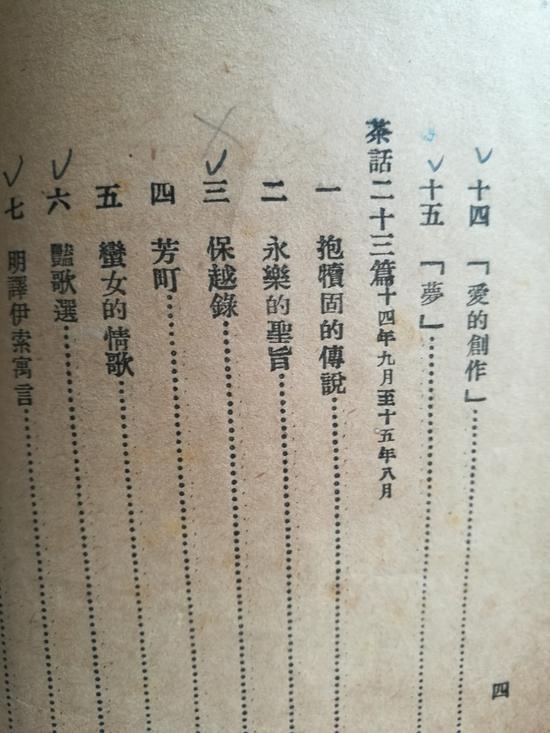 十四 「愛的創作」
十五 「夢」
茶話二十三篇十四年九月至十五年八月
一 抱犢固的傳說
二 永樂的聖旨
三 保越錄
四 芳町
五 蠻女的情歌
六 豔歌選
七 明譯伊索寓言
四